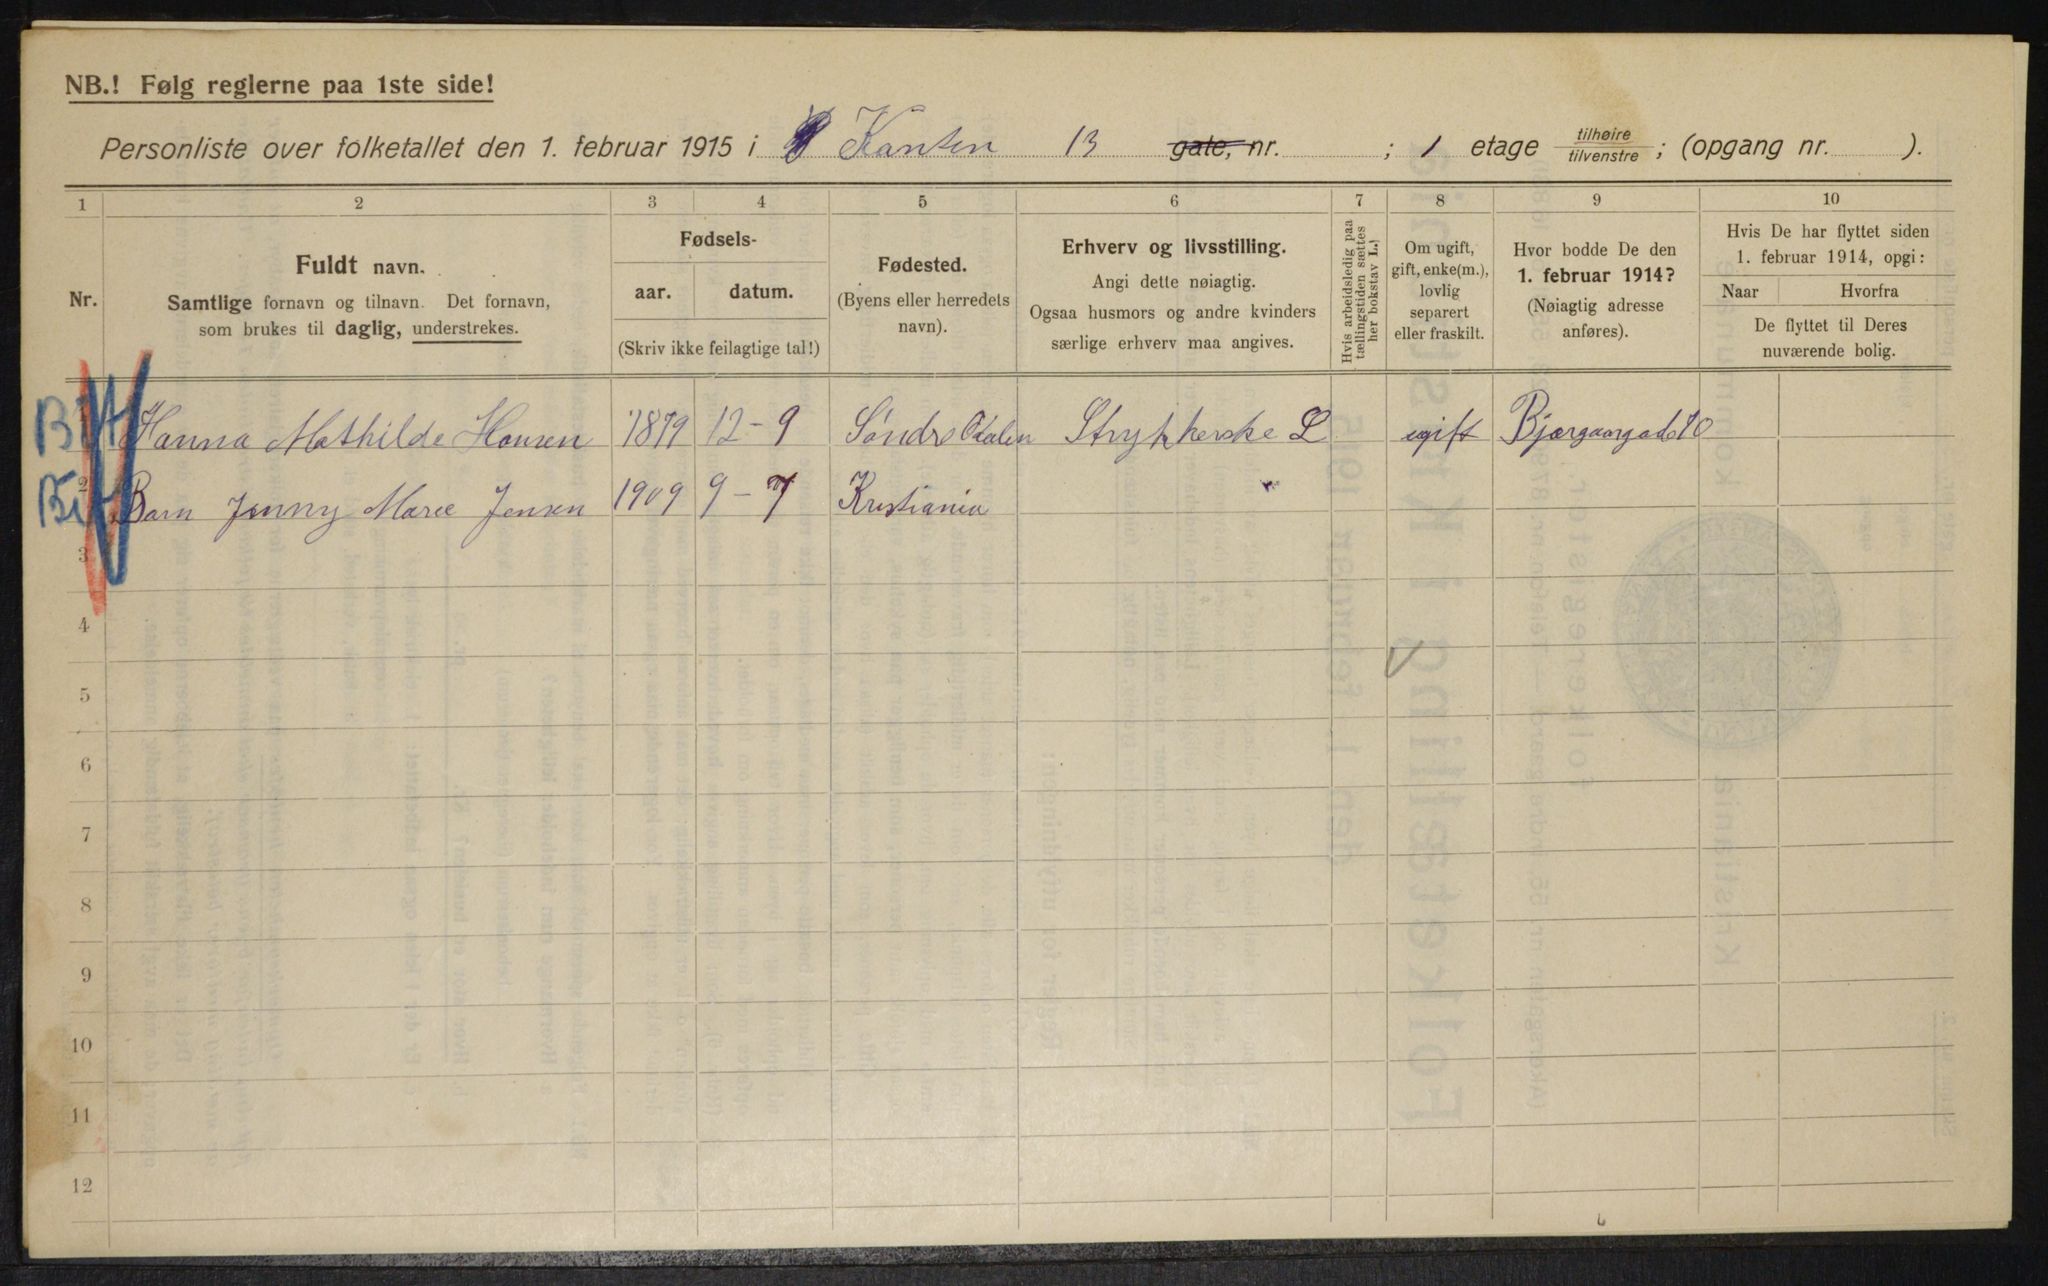 NB.! Følg reglerne paa 1ste side!
Personliste over folketallet den 1. februar 1915 i Kanten 13 gate, nr. ; 1 etage tilhøire tilvenstre ; (opgang nr. ).
1 2 3 4 5 6 7 8 9 10
Nr.
Fuldt navn.
Samtlige fornavn og tilnavn. Det fornavn,
som brukes til daglig, understrekes.
Fødsels-
aar. datum.
(Skriv ikke feilagtige tal!)
Fødested.
(Byens eller herredets
navn).
Erhverv og livsstilling.
Angi dette nøiagtig.
Ogsaa husmors og andre kvinders
særlige erhverv maa angives.
Hvis arbeidsledig paa
tællingstiden sættes
her bokstav L.
Om ugift,
gift, enke(m.),
lovlig
separert
eller fraskilt.
Hvor bodde De den
1. februar 1914?
(Nøiagtig adresse
anføres).
Hvis De har flyttet siden
1. februar 1914, opgi:
Naar Hvorfra
De flyttet til Deres
nuværende bolig.
Hanna Mathilde Hansen 1879 12-9 Søndre Odalen Strykkerske L ugift Bjærgaargade 10
2 Barn Jenny Marie Jensen 1909 9-7 Kristiania "
3
4
5
6
7
8
9
10
11
12